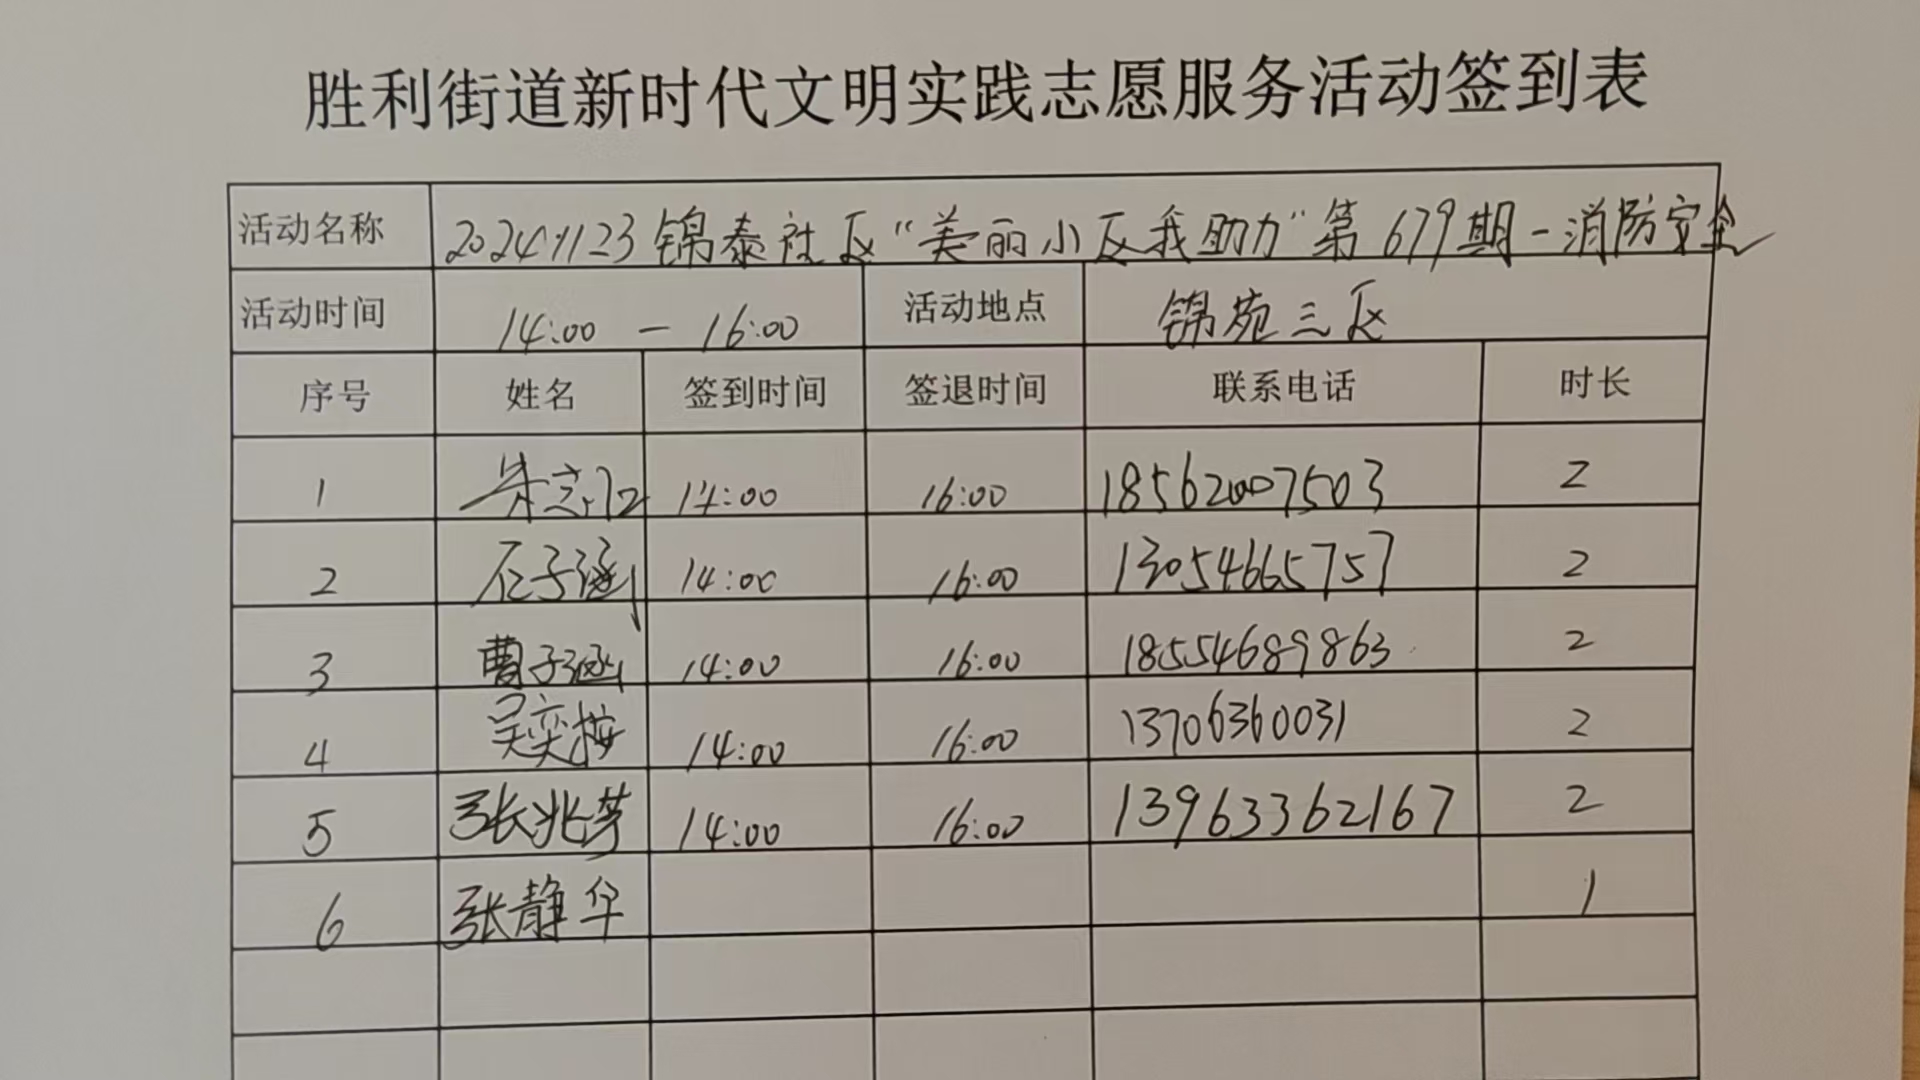 胜利街道新时代文明实践志愿服务活动签到表
活动名称 20241123锦泰社区“美丽小区我助力”第679期-消防安全
活动时间 14:00 - 16:00 活动地点 锦苑三区
序号 姓名 签到时间 签退时间 联系电话 时长
1 14:00 16:00 18562007503 2
2 石子涵 14:00 16:00 13054665757 2
3 曹子涵 14:00 16:00 18554689863 2
4 吴奕按 14:00 16:00 13706360031 2
5 张兆芳 14:00 16:00 13963362167 2
6 张静华 1